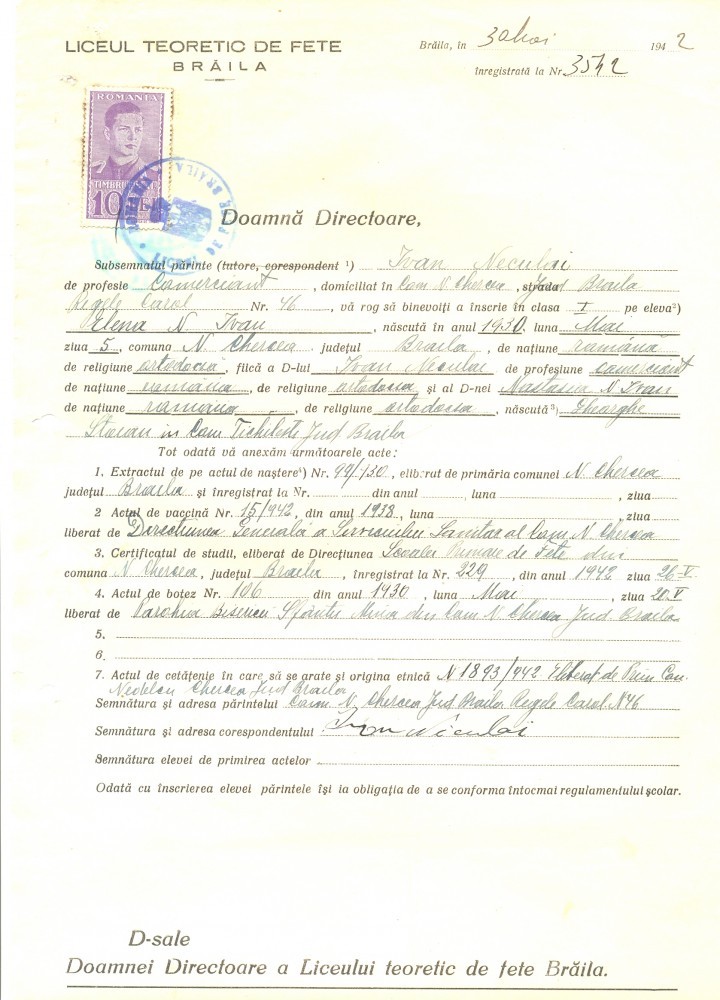 LICEUL TEORETIC DE FETE
BRĂILA
Brăila, în 30 Mai 1942
înregistrată la Nr. 3542
ROMANIA
TIMBRU
10 LEI
Doamnă Directoare,
Subsemnatul părinte (tutore, corespondent ¹) Ivan Neculai
de profesie Comerciant, domiciliat în Com N. Chercea, strada Jud Braila
Regele Carol Nr. 46, vă rog să binevoiți a înscrie în clasa I pe eleva²)
Elena N. Ivan, născută în anul 1930, luna Mai
ziua 5, comuna N Chercea județul Braila, de națiune română
de religiune ortodoxa, fiică a D-lui Ivan Neculai de profesiune comerciant
de națiune romana, de religiune ortodoxa, și al D-nei Nastasia N Ivan
de națiune romana, de religiune ortodoxa, născută³) Gheorghe
Stoian in Com. Tichilesti Jud Braila
Tot odată vă anexăm următoarele acte:
1. Extractul de pe actul de naștere⁴) Nr. 99/130, eliberat de primăria comunei N. Chercea
județul Braila și înregistrat la Nr. din anul, luna, ziua
2 Actul de vaccină Nr. 15/942, din anul 1938, luna, ziua
liberat de Directiunea Generală a Serviciului Sanitar al Com. N. Chercea
3. Certificatul de studii, eliberat de Direcțiunea Scoalei Primare de Fete din
comuna N Chercea, județul Braila, înregistrat la Nr. 229, din anul 1942 ziua 26-V
4. Actul de botez Nr. 106 din anul 1930, luna Mai, ziua 20.V
liberat de Parohia Bisericii Sfântu Mina din Com N. Chercea Jud. Braila
5.
6.
7. Actul de cetățenie în care să se arate și origina etnică N 1893/942 Eliberat de Prim Com.
Nedelcu Chercea Jud Braila
Semnătura și adresa părintelui Com. N. Chercea Jud Braila Regele Carol N46
Semnătura și adresa corespondentului Ivan Niculai
Semnătura elevei de primirea actelor
Odată cu înscrierea elevei părintele își ia obligația de a se conforma întocmai regulamentului școlar.
D-sale
Doamnei Directoare a Liceului teoretic de fete Brăila.